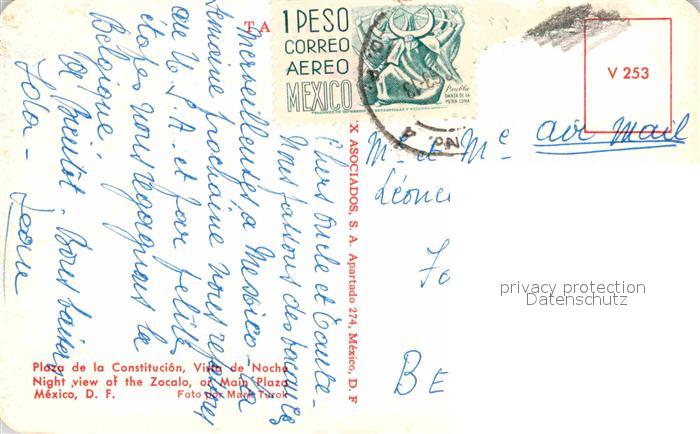 TA
1 PESO
CORREO
AEREO
MEXICO
Puebla
DANZA DE LA
MEDIA LUNA
V 253
air mail
Mr et Me
Chers Oncle et Tante -
Nous passons des vacances
merveilleuses a Mexico - La
semaine prochaine nous
au U.S.A. et par petites
étapes nous regagnons la
Belgique.
A Bientôt. Bons baisers
X ASOCIADOS, S. A. Apartado 274, México, D. F
privacy protection
Datenschutz
BE
Plaza de la Constitución, Vista de Noche
Night view of the Zocalo, or Main Plaza
México, D. F. Foto por Mark Turok